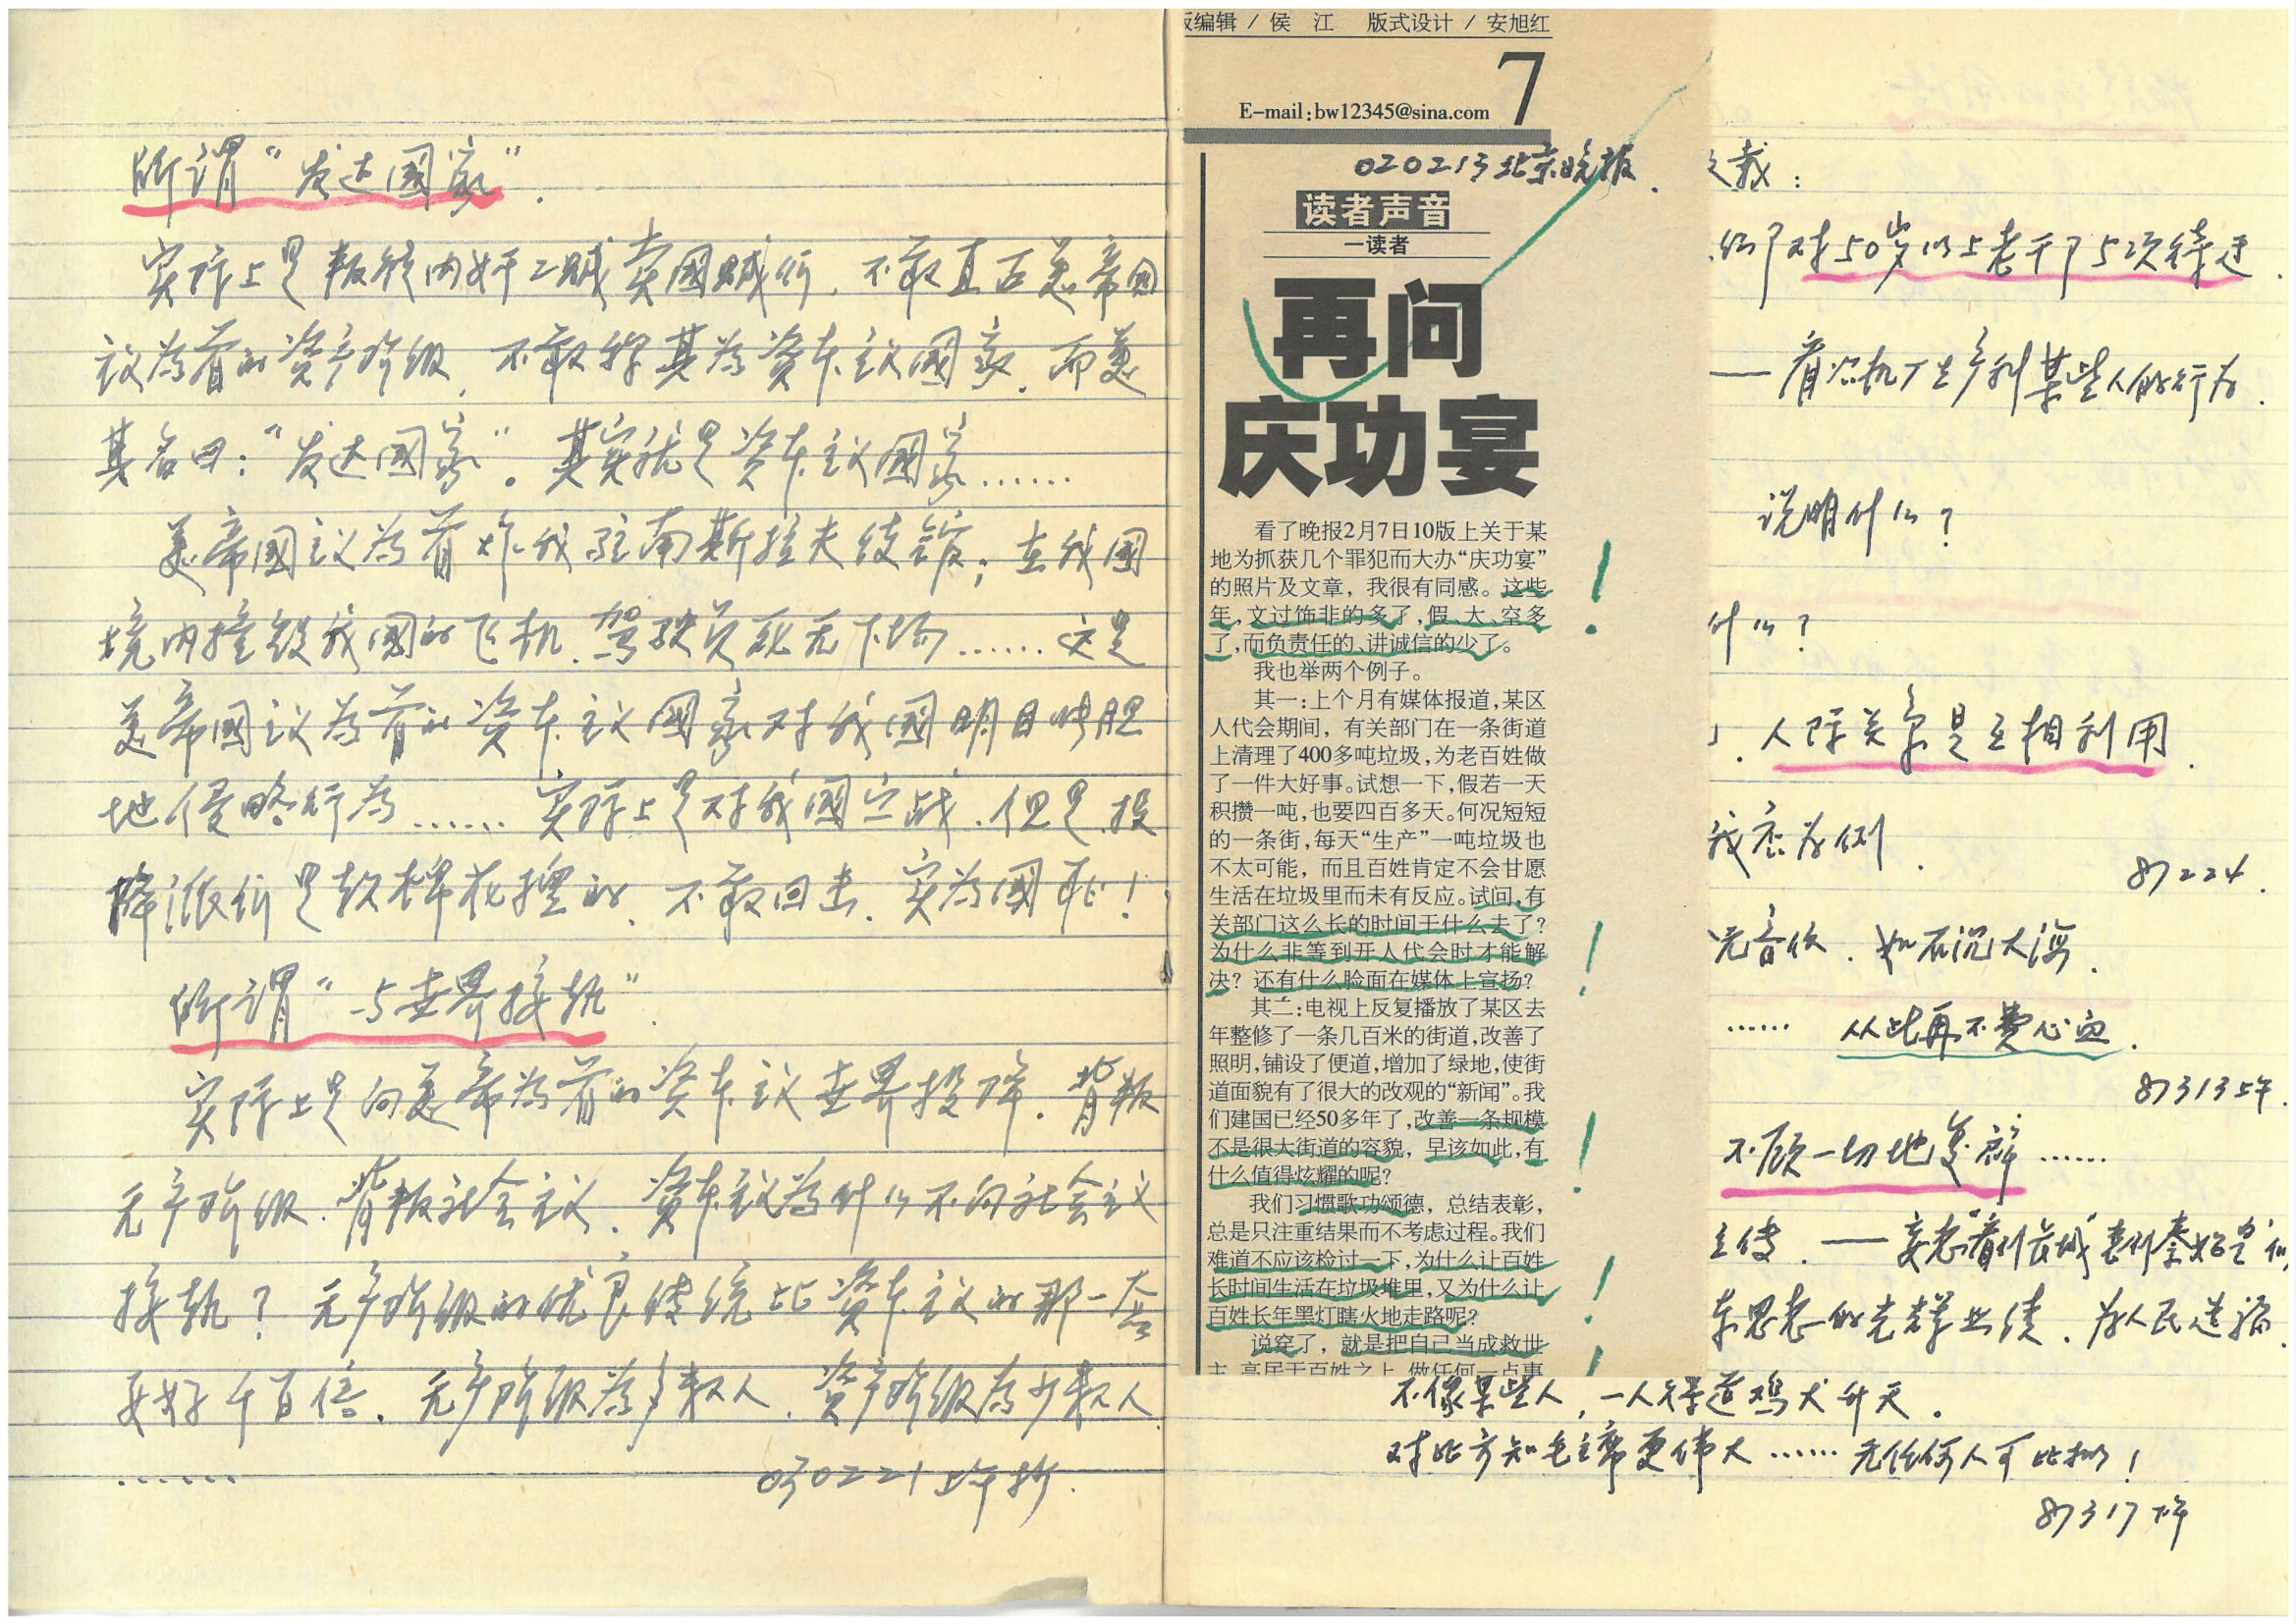 所谓“发达國家”.
实际上是叛徒内奸工贼卖國贼们,不敢直言美帝国
主义为首的资产阶级,不敢称其为资本主义國家,而美
其名曰:“发达國家”。其实就是资本主义國家……
美帝國主义为首炸我驻南斯拉夫使馆;在我國
境内撞毁我國的飞机,驾驶员死无下场……这是
美帝國主义为首的资本主义國家对我國明目张胆
地侵略行为……实际上是对我國宣战.但是,投
降派们是软棉花捏的,不敢回击,实为國耻!
所谓“与世界接轨”.
实际上是向美帝为首的资本主义世界投降.背叛
无产阶级.背叛社会主义,资本主义为什么不向社会主义
接轨?无产阶级的优良传统比资本主义的那一套
要好千百倍.无产阶级为多数人,资产阶级为少数人
……
030221上午抄.
版编辑 / 侯 江 版式设计 / 安旭红
7
E-mail:bw12345@sina.com
020213北京晚报.
读者声音
一读者
再问
庆功宴
看了晚报2月7日10版上关于某
地为抓获几个罪犯而大办“庆功宴”
的照片及文章，我很有同感。这些
年,文过饰非的多了,假、大、空多
了,而负责任的、讲诚信的少了。
我也举两个例子。
其一:上个月有媒体报道,某区
人代会期间，有关部门在一条街道
上清理了400多吨垃圾,为老百姓做
了一件大好事。试想一下,假若一天
积攒一吨,也要四百多天。何况短短
的一条街,每天“生产”一吨垃圾也
不太可能，而且百姓肯定不会甘愿
生活在垃圾里而未有反应。试问,有
关部门这么长的时间干什么去了?
为什么非等到开人代会时才能解
决？还有什么脸面在媒体上宣扬?
其二:电视上反复播放了某区去
年整修了一条几百米的街道,改善了
照明,铺设了便道,增加了绿地,使街
道面貌有了很大的改观的“新闻”。我
们建国已经50多年了,改善一条规模
不是很大街道的容貌，早该如此,有
什么值得炫耀的呢?
我们习惯歌功颂德，总结表彰，
总是只注重结果而不考虑过程。我们
难道不应该检讨一下,为什么让百姓
长时间生活在垃圾堆里,又为什么让
百姓长年黑灯瞎火地走路呢?
说穿了，就是把自己当成救世
主,高居于百姓之上,做任何一点事
之载:
对50岁以上老干部5项待遇.
——看沈机厂生产科某些人的行为.
说明什么?
什么?
.人际关系是互相利用.
我厂为例.
87224.
无音信.如石沉大海.
……从此再不费心血.
87313上午.
不顾一切地复辟……
主传.——妄想看到长城想到秦始皇
东思想的光辉业绩.为人民造福.
不像某些人,一人得道鸡犬升天.
对比方知毛主席更伟大……无任何人可比拟!
87317下午